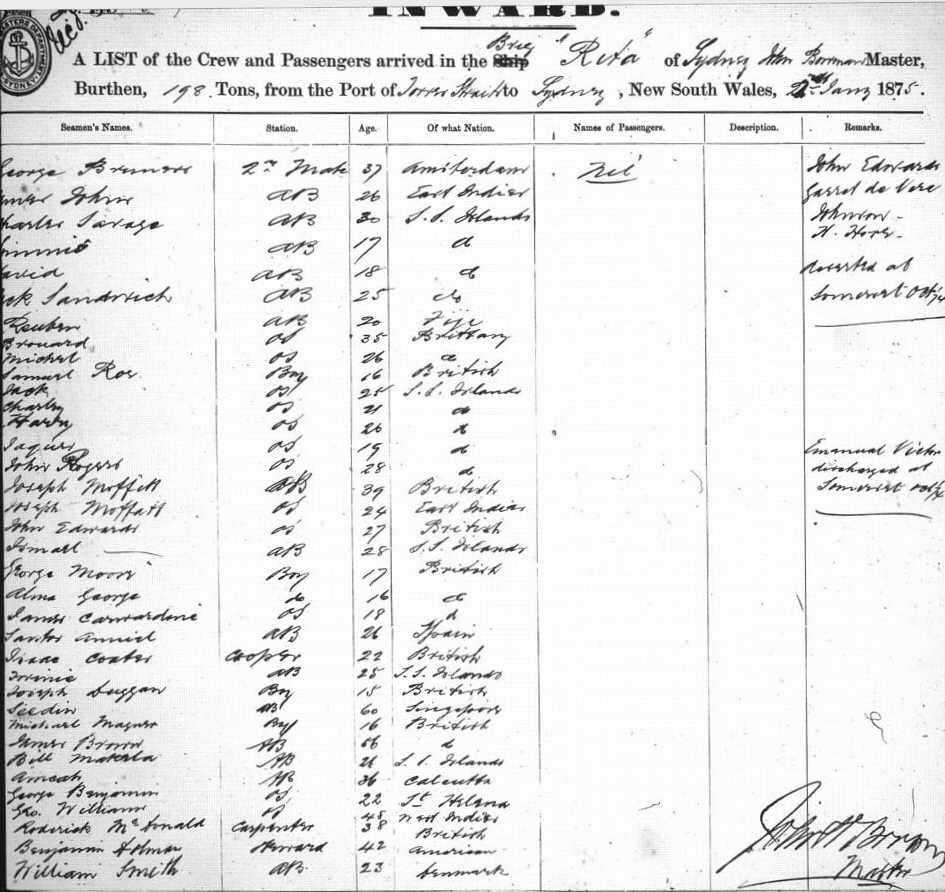 INWARD.
A LIST of the Crew and Passengers arrived in the Ship Brig "Rita" of Sydney John Master,
Burthen, 198 Tons, from the Port of Torres Straits to Sydney, New South Wales, 2nd Jany 1875.
Seamen's Names. Station. Age. Of what Nation. Names of Passengers. Description. Remarks.
George 2nd Mate 37 Amsterdam Nil John Edwards
James Johns AB 26 East Indies Garret de Vere
Charles Savage AB 30 S.S. Islands Johnson
AB 17 do
David AB 18 do deserted at
Jack Sandwich AB 25 do Somerset Oct/74
Reuben AB 20 Fiji
Brouard OS 35 Brittany
Michel OS 26 do
Samuel Roe Boy 16 British
Jack OS 25 S.S. Islands
Charley OS 21 do
Harry OS 26 do
Jaques OS 19 do Emanual Victor
John Rogers OS 28 do discharged at
Joseph Moffett AB 39 British Somerset Oct/74
Joseph Moffatt OS 24 East Indies
John Edwards OS 27 British
Ismael AB 28 S.S. Islands
George Moore Boy 17 British
Alma George do 16 do
James Carwardine OS 18 do
Santos AB 21 Spain
Isaac Coates Cooper 22 British
AB 25 S.S. Islands
Joseph Duggan Boy 15 British
Seedin AB 60 Singapore
Michael Magner Boy 16 British
James Brown AB 56 do
Bill AB 21 S.S. Islands
Ameah AB 36 Calcutta
George Benjamin OS 22 St Helena
Geo. Williams OS 45 West Indies
Roderick McDonald Carpenter 38 British
Benjamin Holmes Steward 42 American
William Smith AB 23 Denmark
Master